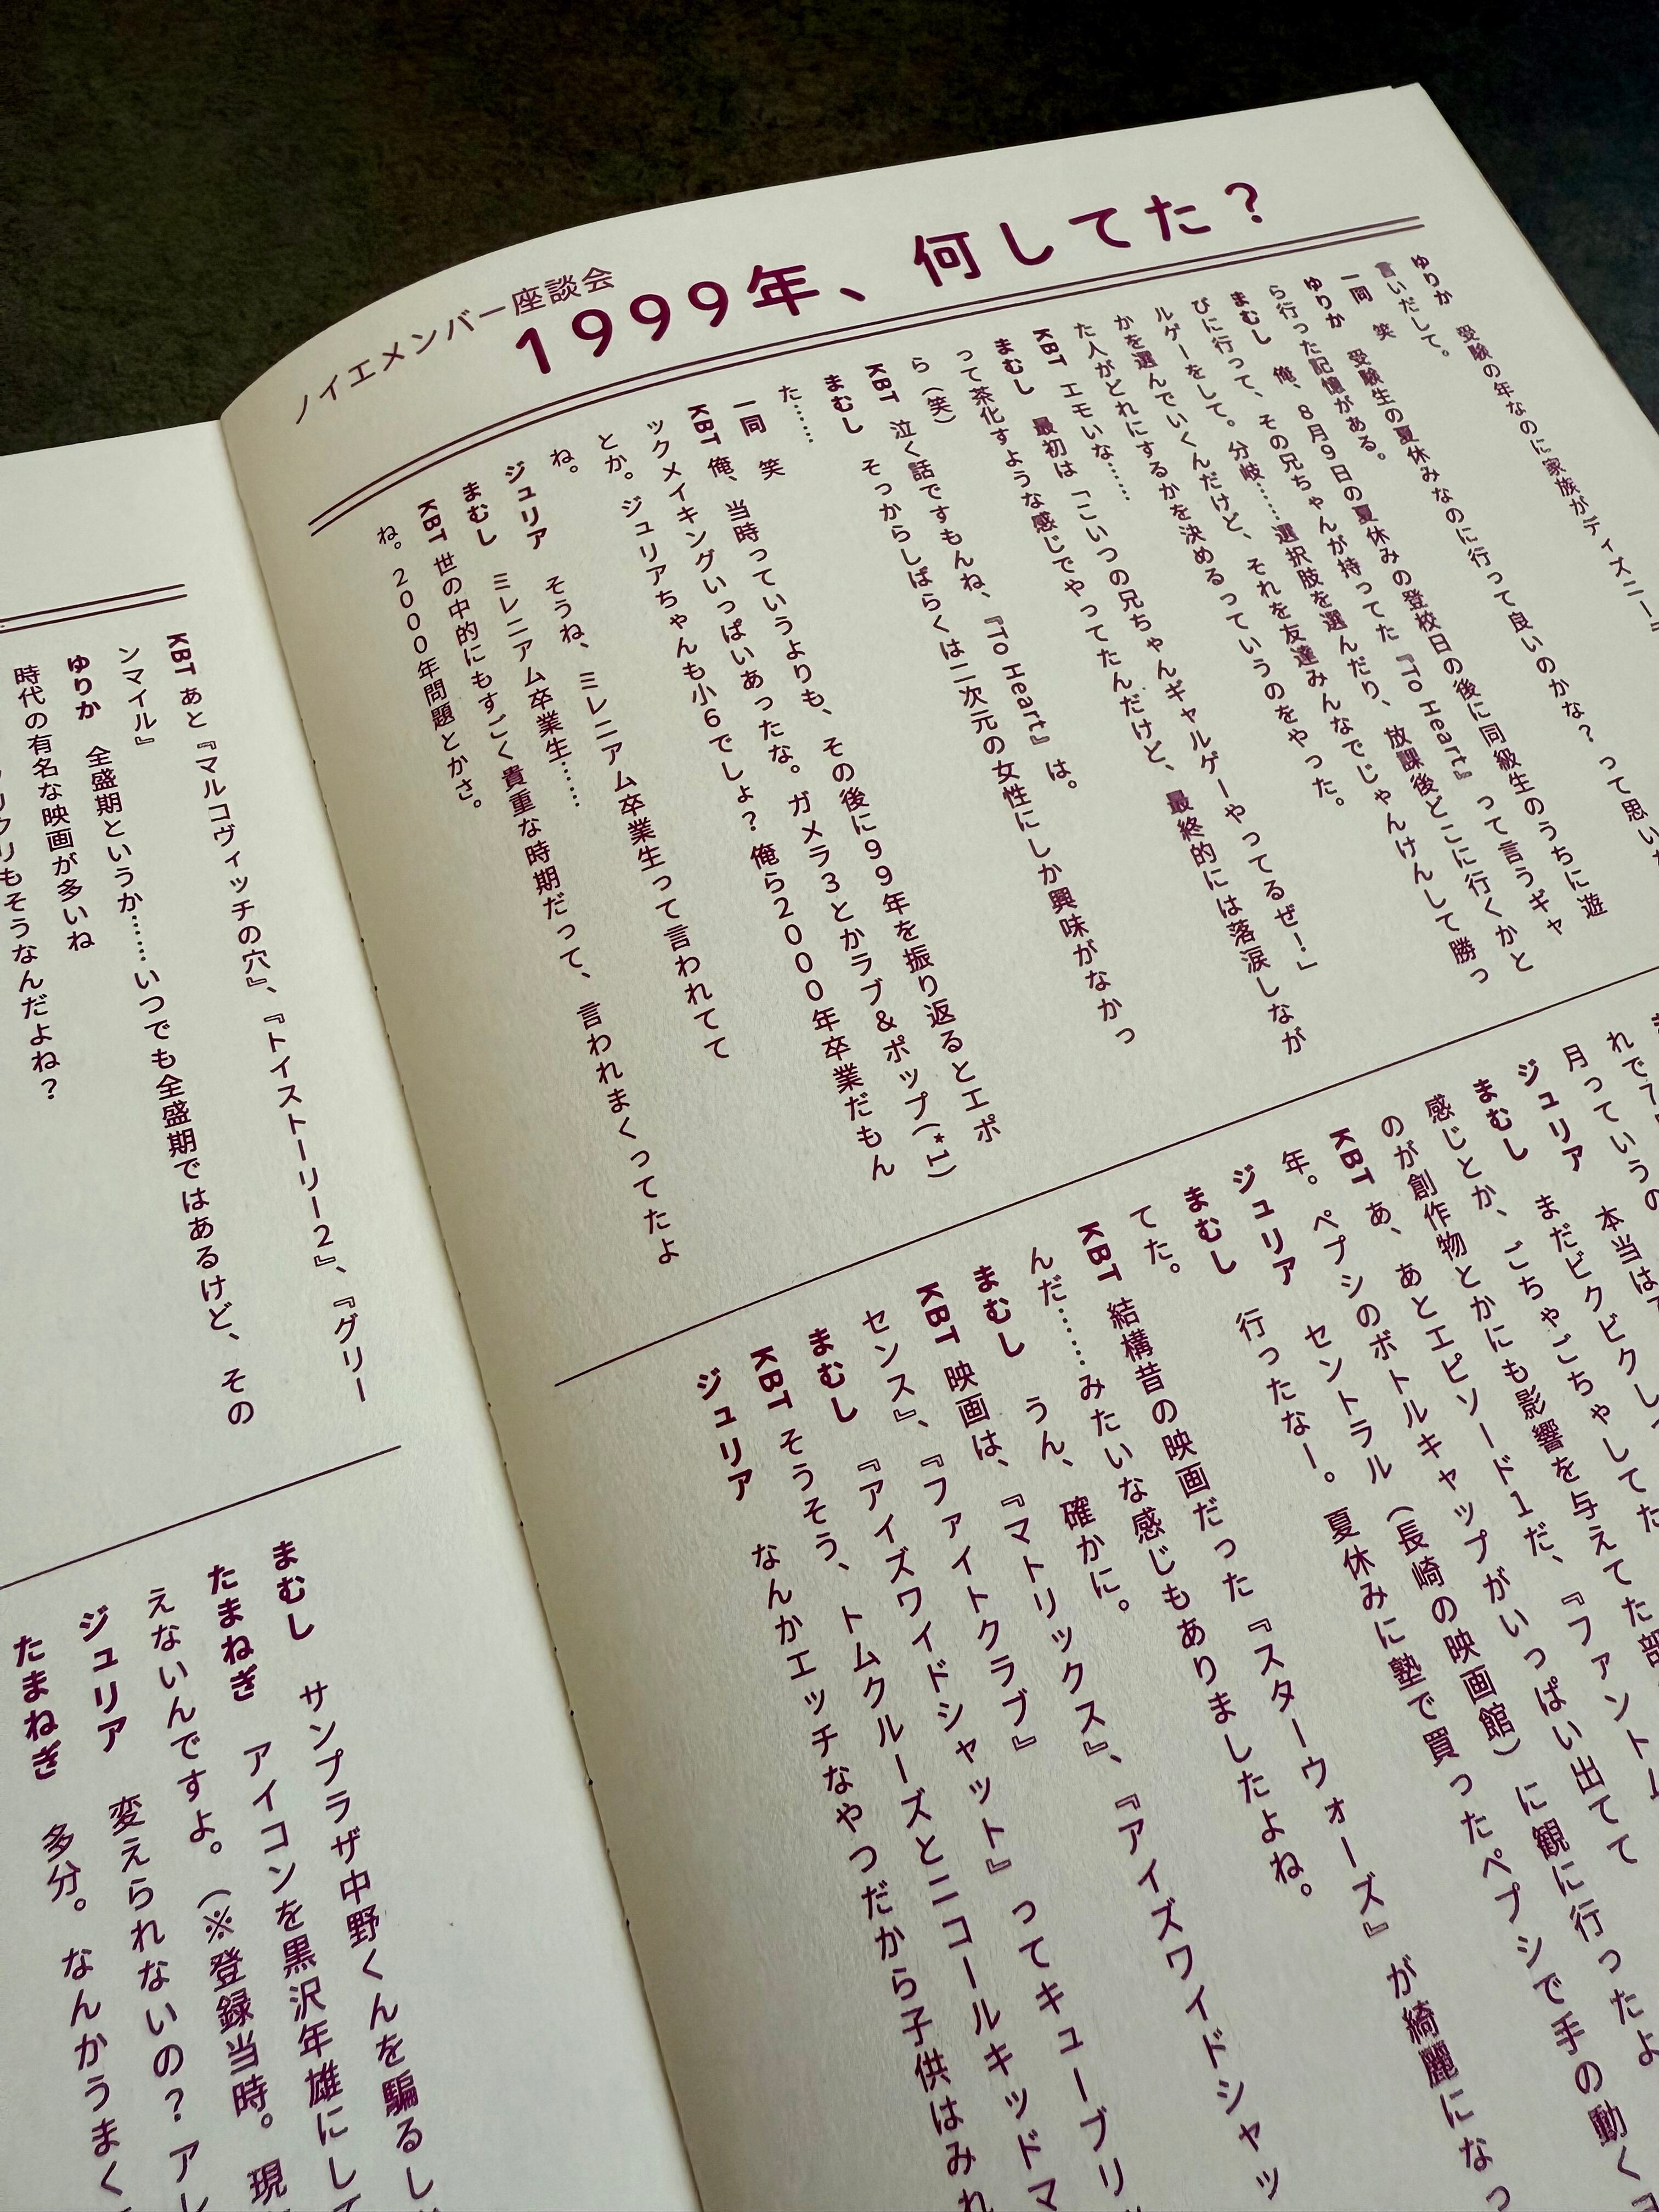 ノイエメンバー座談会
1999年、何してた？
ゆりか　受験の年なのに家族がディズニー
言いだして。
一同　笑
ゆりか　受験生の夏休みなのに行って良いのかな？って思い
ら行った記憶がある。
まむし　俺、8月9日の夏休みの登校日の後に同級生のうちに遊
びに行って、その兄ちゃんが持ってた『To Heart』って言うギャ
ルゲーをして。分岐……選択肢を選んだり、放課後どこに行くかと
かを選んでいくんだけど、それを友達みんなでじゃんけんして勝っ
た人がどれにするかを決めるっていうのをやった。
KBT　エモいな……
まむし　最初は「こいつの兄ちゃんギャルゲーやってるぜ！」
って茶化すような感じでやってたんだけど、最終的には落涙しなが
ら（笑）
KBT　泣く話ですもんね、『To Heart』は。
まむし　そっからしばらくは二次元の女性にしか興味がなかっ
た……
一同　笑
KBT　俺、当時っていうよりも、その後に99年を振り返るとエポ
ックメイキングいっぱいあったな。ガメラ3とかラブ＆ポップ(*1)
とか。ジュリアちゃんも小6でしょ？俺ら2000年卒業だもん
ね。
ジュリア　そうね、ミレニアム卒業生って言われてて
まむし　ミレニアム卒業生……
KBT　世の中的にもすごく貴重な時期だって、言われまくってたよ
ね。2000年問題とかさ。
れで7
月っていうの
ジュリア　本当は
まむし　まだビクビクし
感じとか、ごちゃごちゃしてた
のが創作物とかにも影響を与えてた部
KBT　あ、あとエピソード1だ、『ファントム
年。ペプシのボトルキャップがいっぱい出てて
ジュリア　セントラル（長崎の映画館）に観に行ったよ
まむし　行ったなー。夏休みに塾で買ったペプシで手の動く
てた。
KBT　結構昔の映画だった『スターウォーズ』が綺麗になっ
んだ……みたいな感じもありましたよね。
まむし　うん、確かに。
KBT　映画は、『マトリックス』、『アイズワイドシャッ
センス』、『ファイトクラブ』
まむし　『アイズワイドシャット』ってキューブリッ
KBT　そうそう、トムクルーズとニコールキッドマ
ジュリア　なんかエッチなやつだから子供はみれ
KBT　あと『マルコヴィッチの穴』、『トイストーリー2』、『グリー
ンマイル』
ゆりか　全盛期というか……いつでも全盛期ではあるけど、その
時代の有名な映画が多いね
リクリもそうなんだよね？
まむし　サンプラザ中野くんを騙るし
たまねぎ　アイコンを黒沢年雄にして
えないんですよ。（※登録当時。現
ジュリア　変えられないの？アレ
たまねぎ　多分。なんかうまく